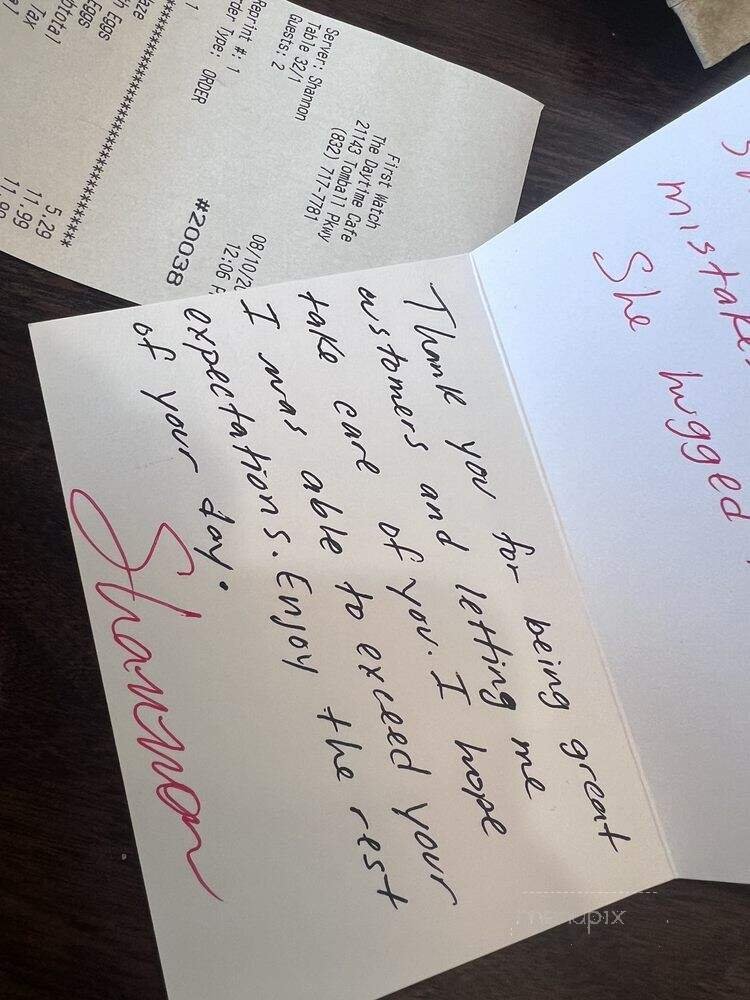 First Watch
The Daytime Cafe
21143 Tomball Pkwy
(832) 717-7781
Server: Shannon
Table 32/1
Guests: 2
08/10/20
12:06 P
#20038
Reprint #: 1
Order Type: ORDER
5.29
Eggs 11.99
Eggs 11.99
Tax
mistake
She hugged
Thank you for being great
customers and letting me
take care of you. I hope
I was able to exceed your
expectations. Enjoy the rest
of your day.
Shannon
menupix